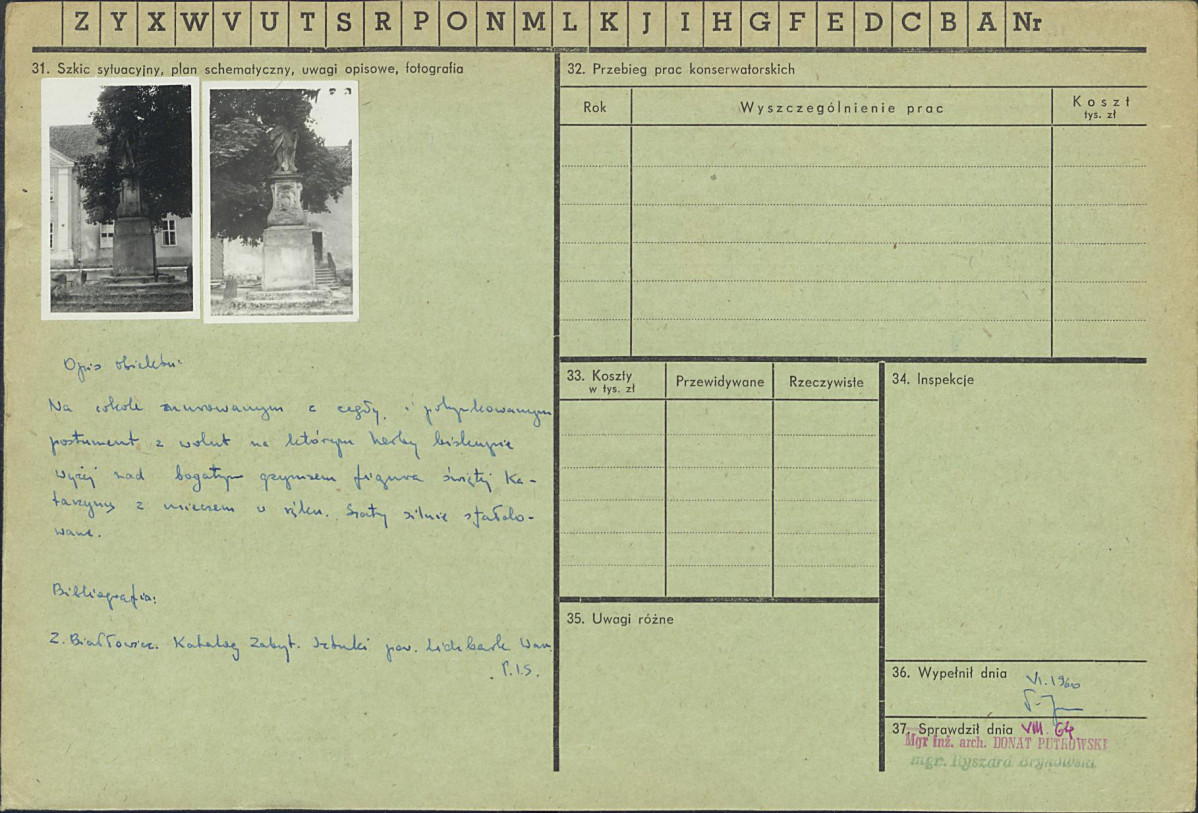 Z Y X W V U T S R P O N M L K J I H G F E D C B A Nr
31. Szkic sytuacyjny, plan schematyczny, uwagi opisowe, fotografia
Opis obiektu:
Na cokole zmurowanym z cegły i potynkowanym
postument z wolut na którym herby biskupie
wyżej nad bogatym gzymsem figura świętej Ka-
tarzyny z mieczem w ręku. Szaty silnie sfałdo-
wane.
Bibliografia:
Z. Białłowicz. Katalog Zabyt. Sztuki pow. Lidzbark Warm
P.I.S.
32. Przebieg prac konserwatorskich
Rok
Wyszczególnienie prac
Koszt
tys. zł
33. Koszty
w tys. zł
Przewidywane
Rzeczywiste
34. Inspekcje
35. Uwagi różne
36. Wypełnił dnia
VI.1960
37. Sprawdził dnia VIII 64
Mgr inż. arch. DONAT PUTKOWSKI
mgr. Ryszard Brykowski